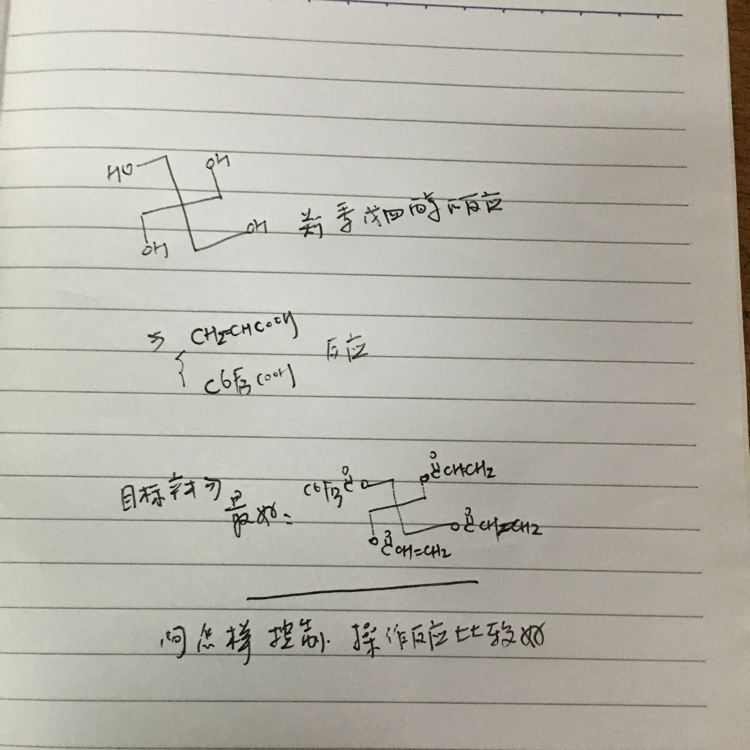 HO OH
OH OH 关季戊四醇反应
与 CH2=CHCOOH
C6F13COOH 反应
目标产物
最好:
C6F13 C O O O C CHCH2
O C CH=CH2 O C CH=CH2
问怎样控制.操作反应比较好